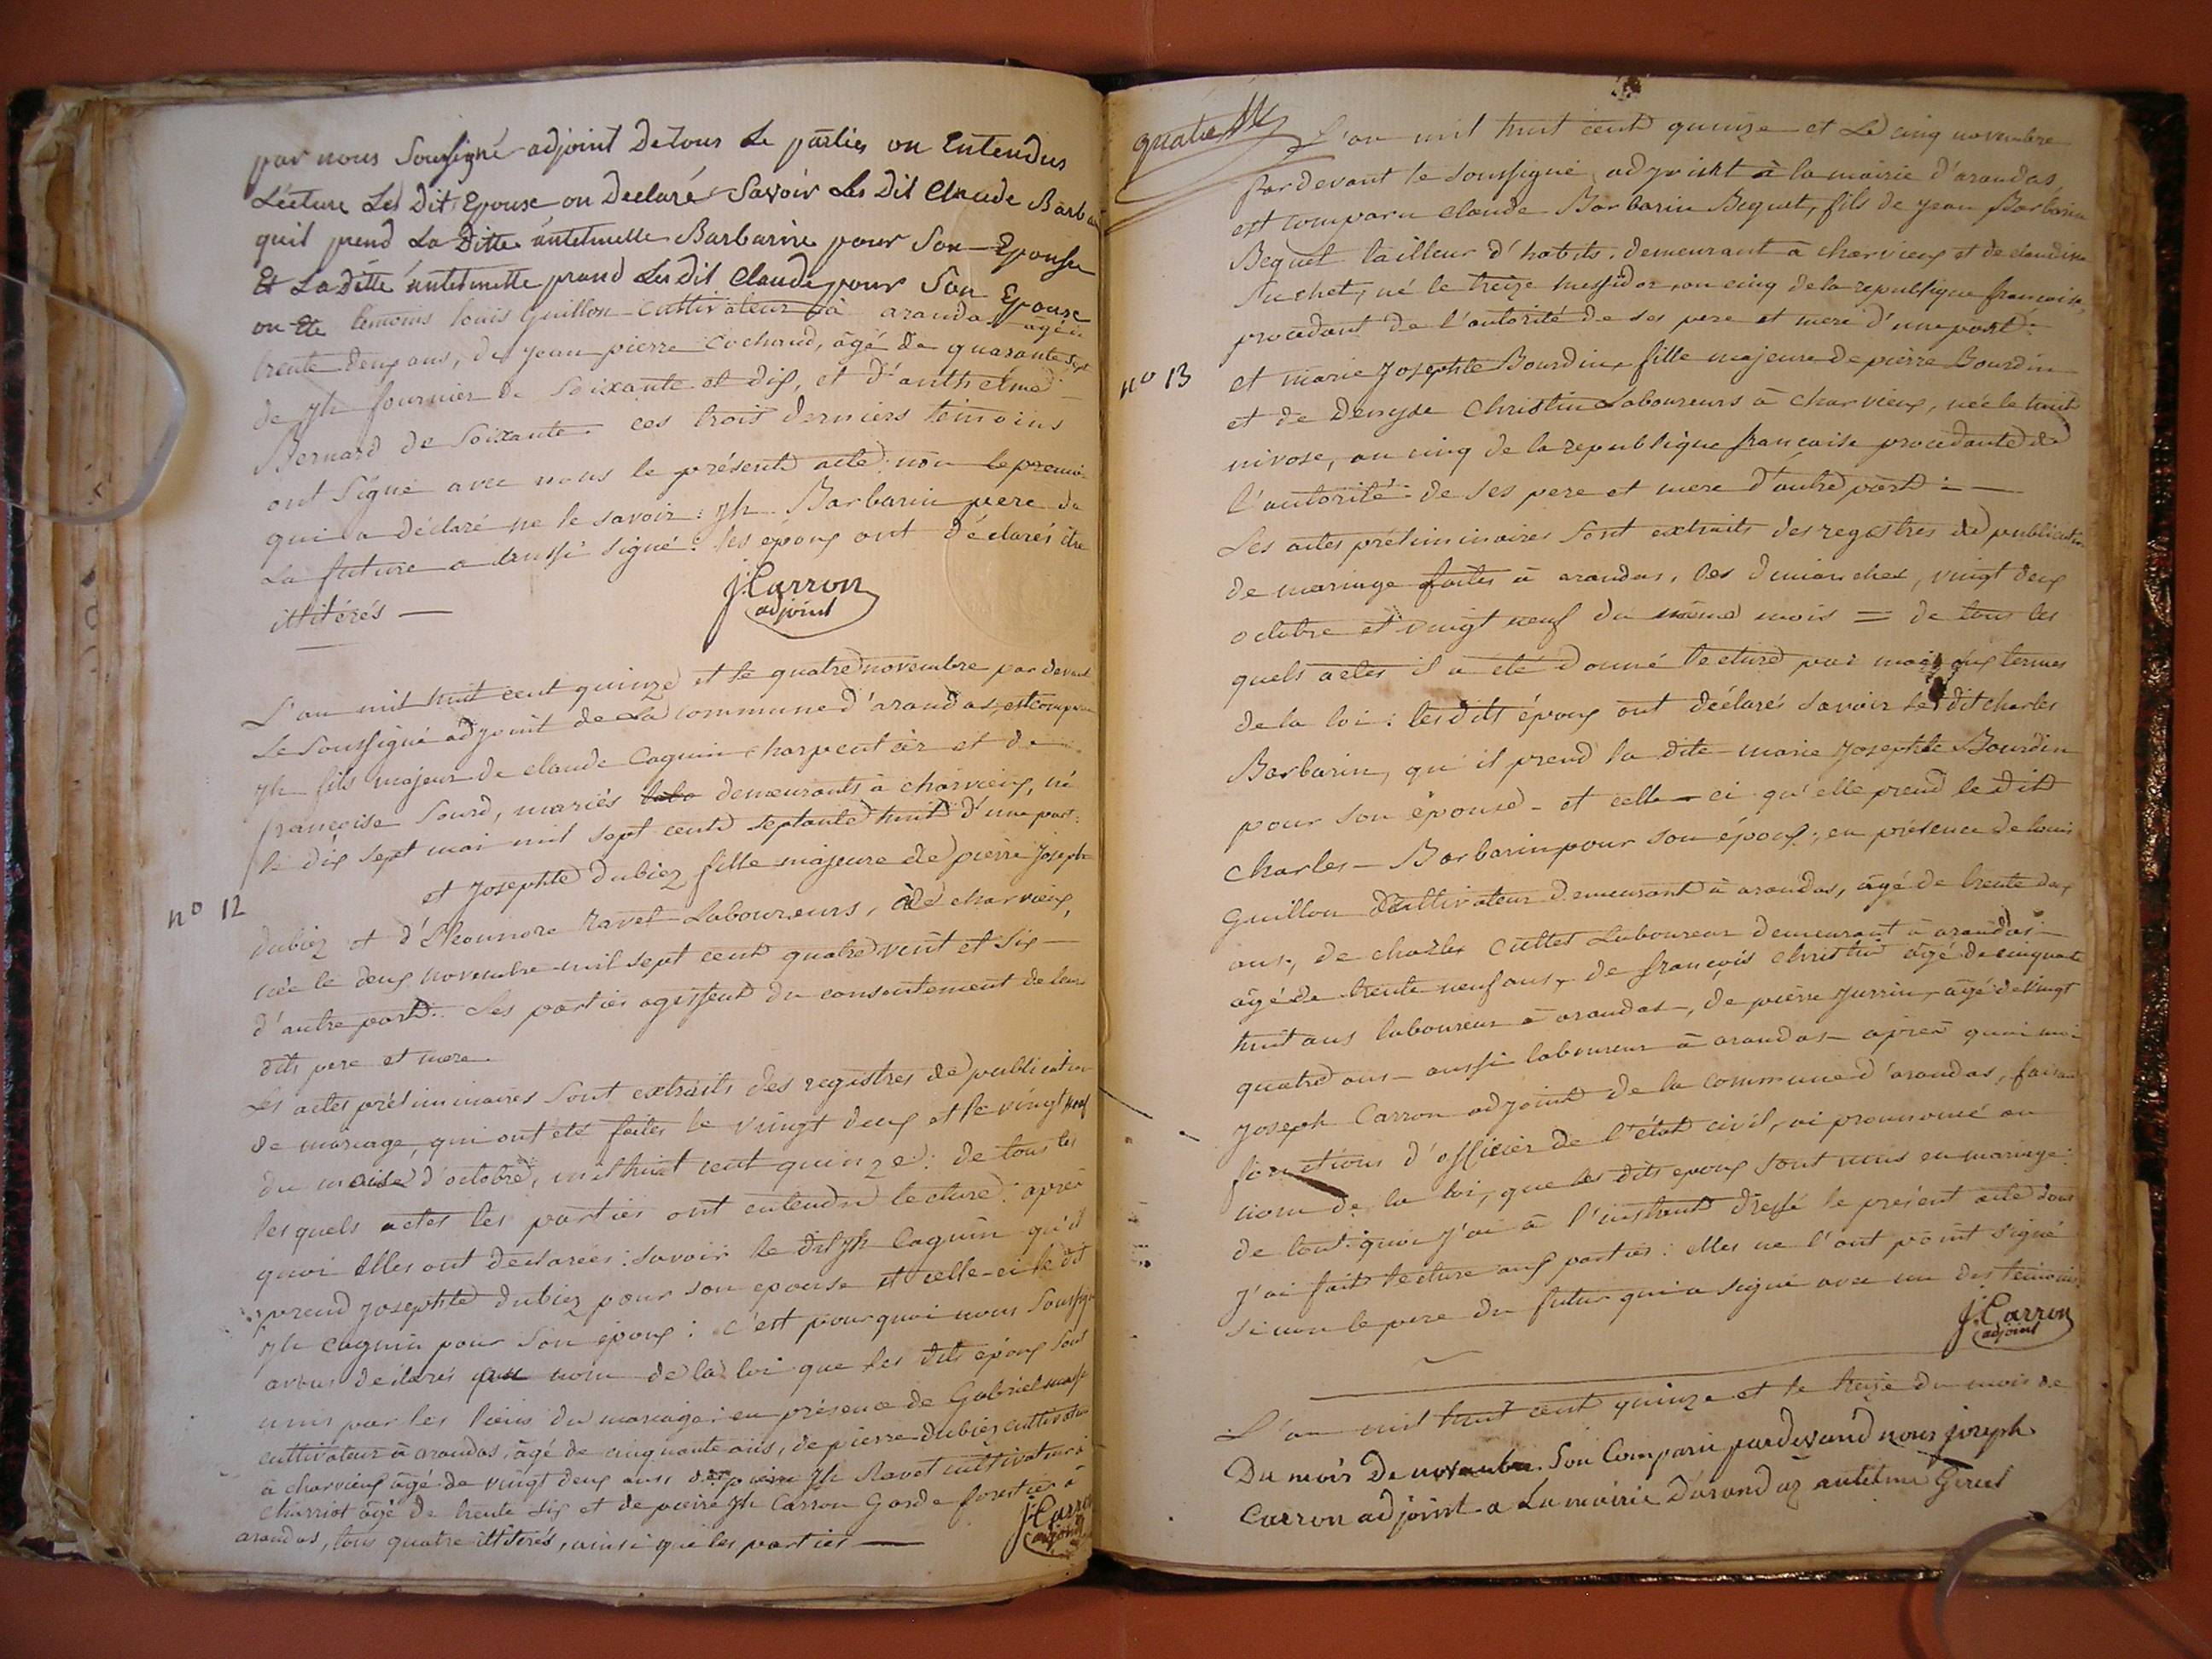 par nous Sousigné adjoint De tous Le parties on Entendus
Lécture Les Dit Epouse on Declaré Savoir Les Dit Claude Barba
quil prend La Ditte antelmette Barbarin pour Son Epouse
Et La Ditte antelmette prand Les Dit Claude pour Son Epouse
on Ete temoins louis Guillon Cultivateur à arandas agé de
trente deux ans, de jean pierre Cochand, âgé de quarante sept
de jh fournier de Soixante et dix, et d'anthelme
Bernard de Soixante. ces trois derniers temoins
ont Signé avec nous le présent acte non le premier
qui a déclaré ne le savoir: jh Barbarin pere de
La future a aussi signé. les époux ont déclarés être
illitérés —
J. Carron
adjoint
L'an mil huit cent quinze et le quatre novembre par devant
Le Soussigné adjoint de La commune d'arandas, est comparu
jh fils majeur de claude Cagnin charpentier et de
françoise Sourd, mariés demeurants à charvieux, né
le dix sept mai mil sept cent septante huit d'une part:
et Josephte dubiez fille majeure de pierre Joseph
n° 12
dubiez et d'Eleonnore Ravet Laboureurs, de charvieux,
née le deux novembre mil sept cent quatre vint et six —
d'autre part: Les parties agissent du consentement de leurs
dits pere et mere.
Les actes préliminaires Sont extraits des registres de publication
de mariage, qui ont été faites le vingt deux et le vingt neuf
du mois d'octobre, mil huit cent quinze: de tous les
lesquels actes les parties ont entendu lecture: après
quoi Elles ont declarées: savoir le dit jh Cagnin qu'il
prend Josephte dubiez pour son epouse et celle-ci le dit
jh Cagnin pour Son époux: c'est pourquoi nous Soussigné
avons déclarés au nom de la loi que les dits époux sont
unis par les liens du mariage: en présence de Gabriel
cultivateur à arandas, âgé de cinquante ans, de pierre dubiez cultivateur
à charvieux âgé de vingt deux ans de jh Ravet cultivateur à
charriot âgé de trente six et de pierre jh Carron Garde forestier à
arandas, tous quatre illitérés, ainsi que les parties —
J. Carron
adjoint
quatre
L'an mil huit cent quinze et Le cinq novembre
Par devant le soussigné adjoint à la mairie d'arandas
est comparu claude Barbarin Bequet, fils de jean Barbarin
Bequet tailleur d'habits, demeurant à charvieux et de claudine
Suchet, né le treize messidor, an cinq de la republique française,
procedant de l'autorité de ses pere et mere d'une part:
n° 13
et marie Josephte Bourdin, fille majeure de pierre Bourdin
et de Denyse Christin Laboureurs à charvieux, née le huit
nivose, an cinq de la republique française procedante de
l'autorité de ses pere et mere d'autre part: —
Les actes préliminaires Sont extraits des registres de publication
de mariage faites à arandas, les dimanches, vingt deux
octobre et vingt neuf du même mois = de tous les
quels actes il a été donné lecture par moi aux termes
de la loi: les dits époux ont déclarés savoir le dit charles
Barbarin, qu'il prend la dite marie Josephte Bourdin
pour son épouse - et celle-ci qu'elle prend le dit
charles - Barbarin pour son époux, en présence de louis
Guillon Cultivateur demeurant à arandas, âgé de trente deux
ans, de charles Cullet Laboureur demeurant à arandas
âgé de trente neuf ans, de françois christin âgé de cinquante
huit ans laboureur à arandas, de pierre Jurrin, âgé de vingt
quatre ans - aussi laboureur à arandas - après quoi moi
Joseph Carron adjoint de la commune d'arandas, faisant
fonctions d'officier de l'état civil, ai prononcé au
nom de la loi, que les dits epoux sont unis en mariage:
de tout quoi j'ai à l'instant dressé le présent acte dont
J'ai fait lecture aux parties: elles ne l'ont point signé
si non le pere du futur qui a signé avec un des temoins.
J. Carron
adjoint
L'an mil huit cent quinze et le treize du mois de
Du mois De novembre. Son Comparu pardevand nous joseph
Carron adjoint a La mairie D'arandaz antelme